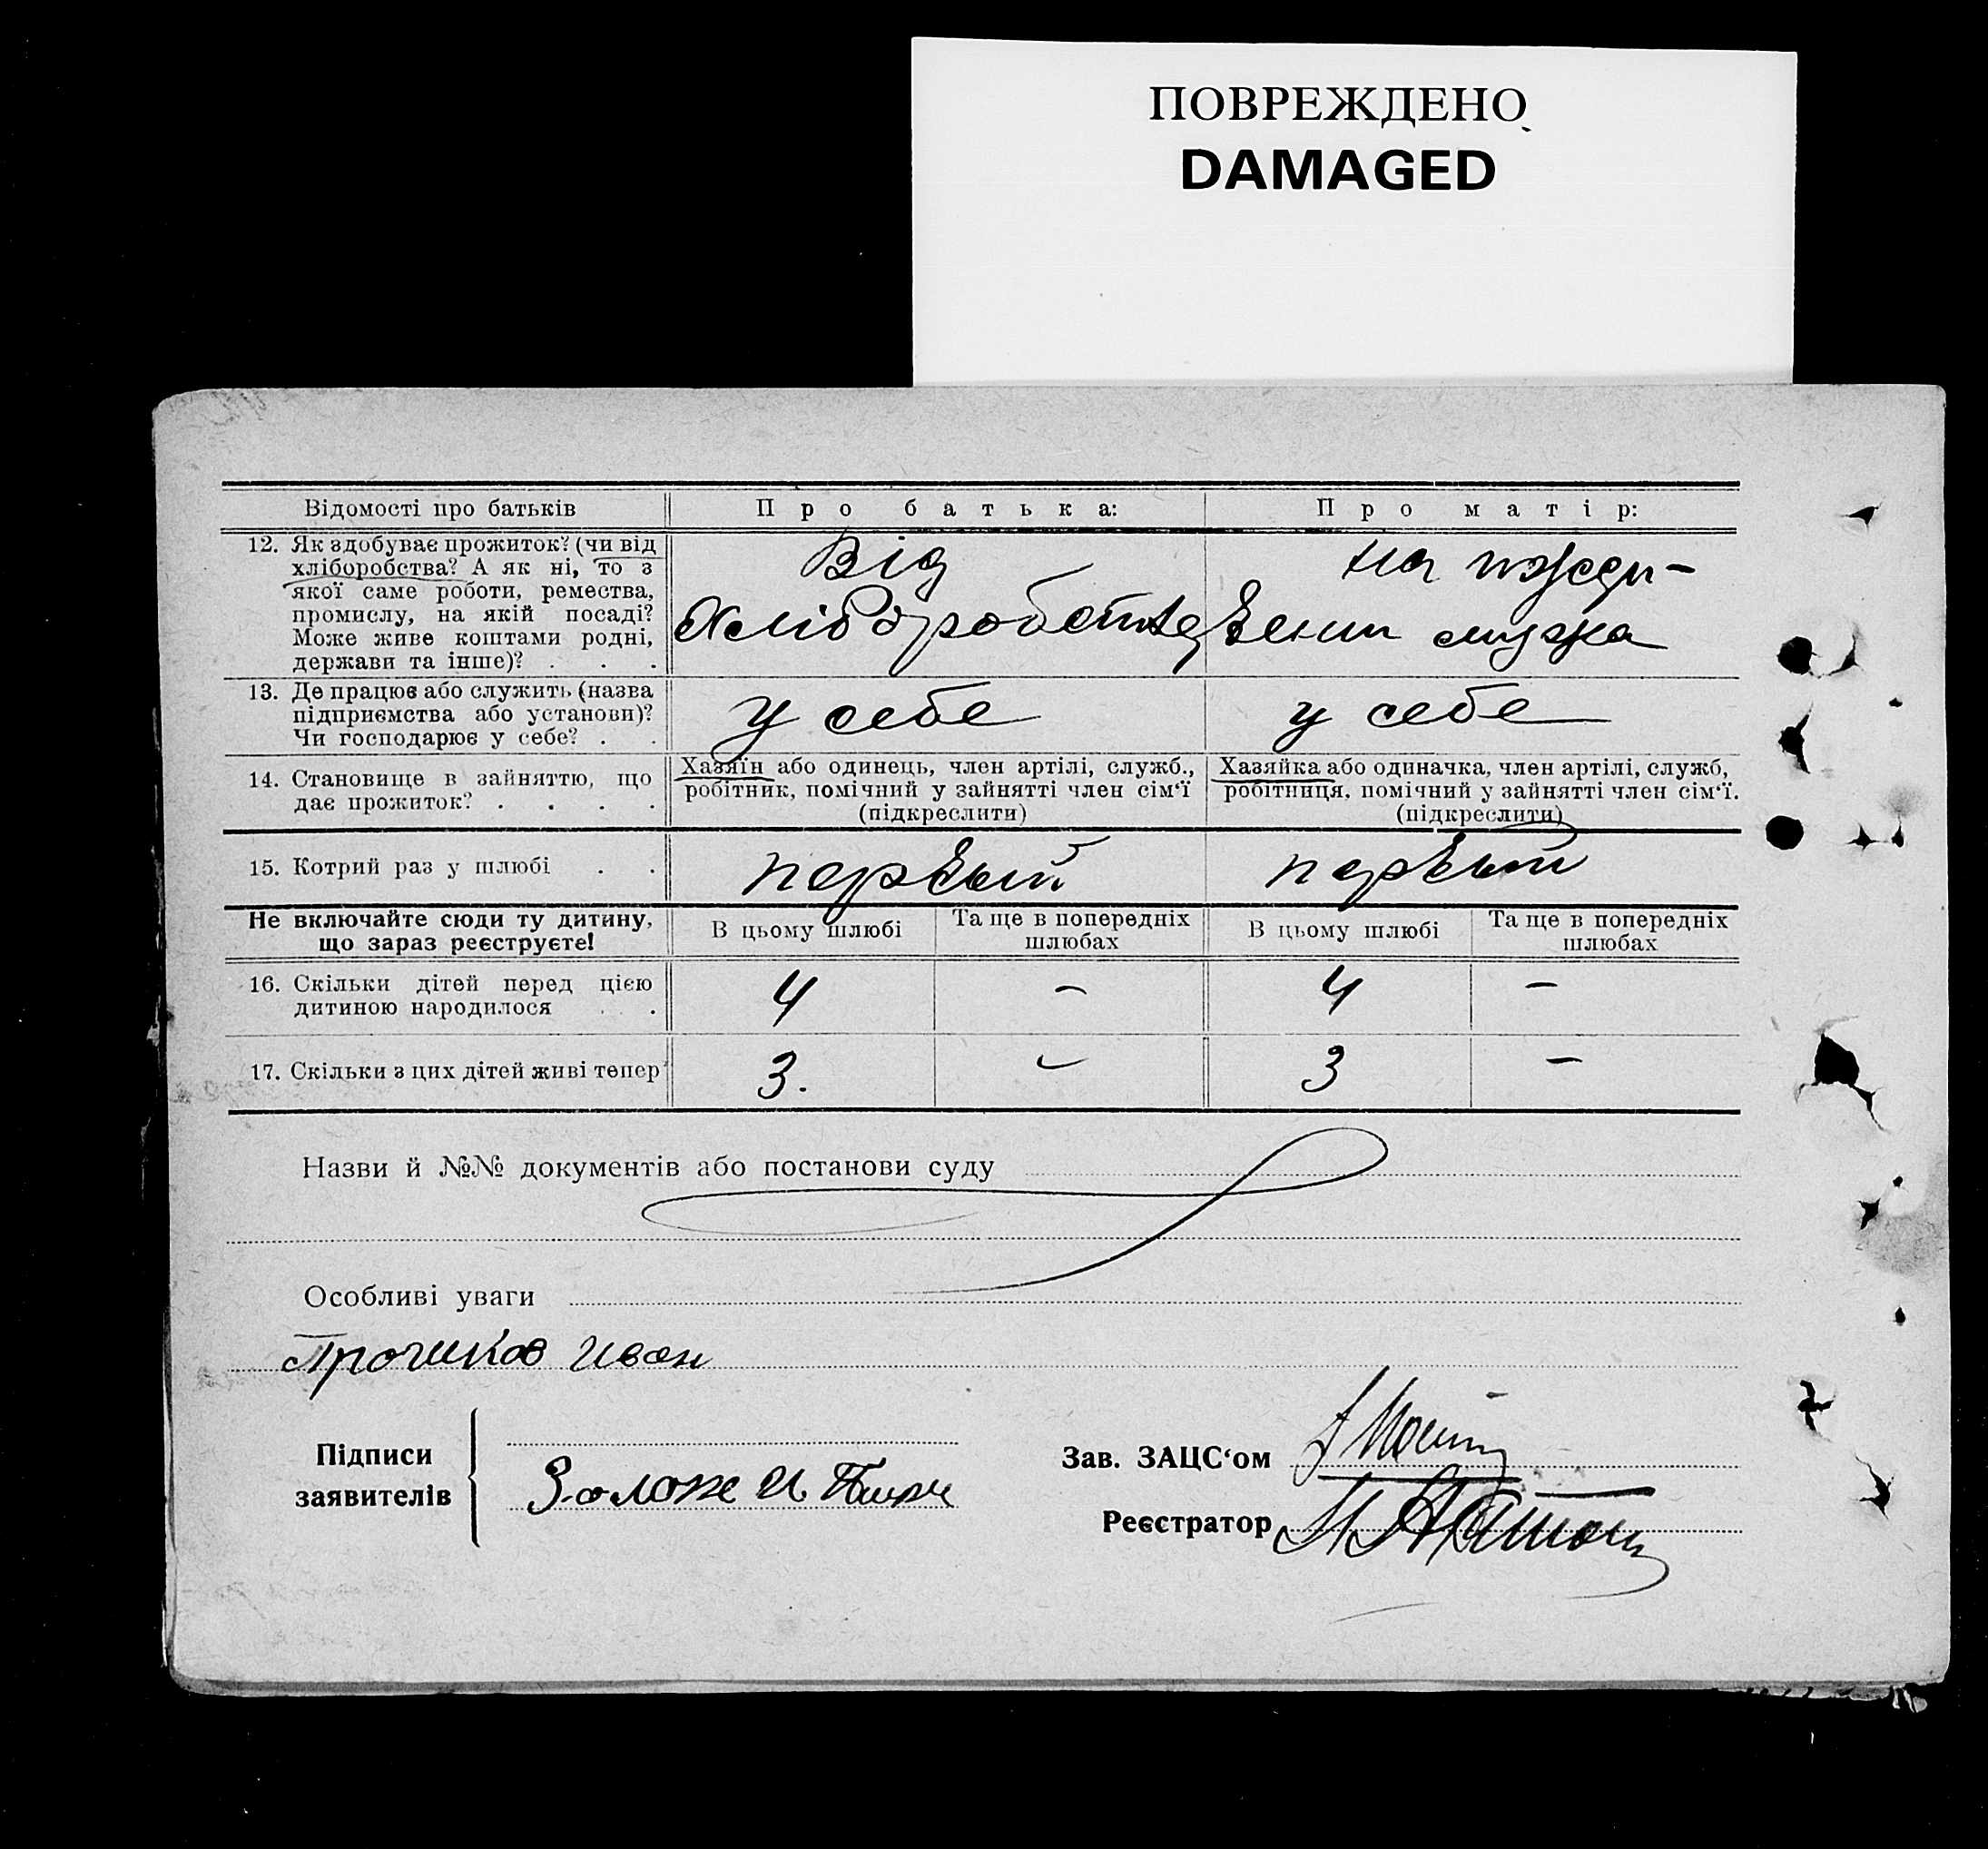 ПОВРЕЖДЕНО
DAMAGED
Відомості про батьків
Про батька:
Про матір:
12. Як здобуває прожиток? (чи від
хліборобства? А як ні, то з
якої саме роботи, ремества,
промислу, на якій посаді?
Може живе коштами родні,
держави та інше)? . . .
Від
Хліборобства
на иждеи-
вении мужа
13. Де працює або служить (назва
підприємства або установи)?
Чи господарює у себе? . .
у себе
у себе
14. Становище в зайняттю, що
дає прожиток? . . . .
Хазяїн або одинець, член артілі, служб.,
робітник, помічний у зайнятті член сім'ї
(підкреслити)
Хазяйка або одиначка, член артілі, служб,
робітниця, помічний у зайнятті член сім'ї.
(підкреслити)
15. Котрий раз у шлюбі . .
первый
первый
Не включайте сюди ту дитину,
що зараз реєструєте!
В цьому шлюбі
Та ще в попередніх
шлюбах
В цьому шлюбі
Та ще в попередніх
шлюбах
16. Скільки дітей перед цією
дитиною народилося . . .
4
-
4
-
17. Скільки з цих дітей живі тепер
3.
-
3
-
Назви й №№ документів або постанови суду
Особливі уваги
Иван
Підписи
заявителів
Зав. ЗАЦС'ом
Реєстратор